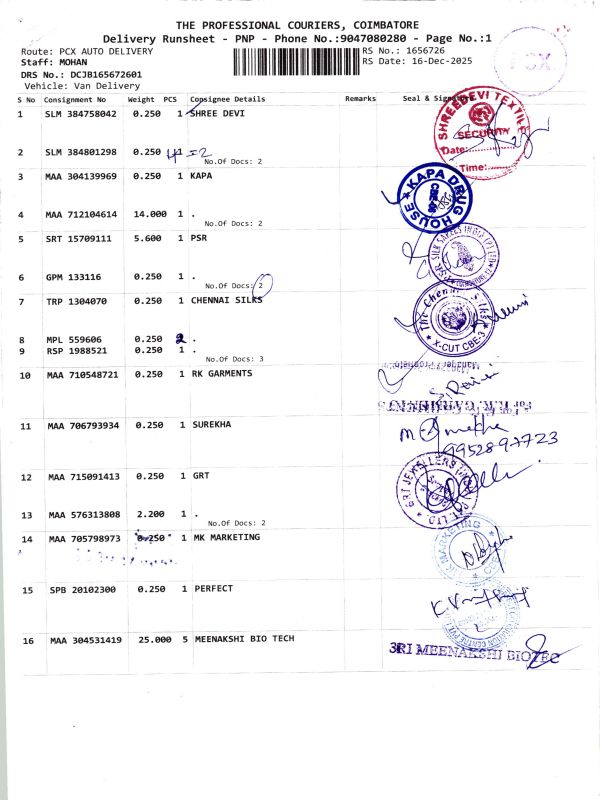 THE PROFESSIONAL COURIERS, COIMBATORE
Delivery Runsheet - PNP - Phone No.:9047080280 - Page No.:1
Route: PCX AUTO DELIVERY
RS No.: 1656726
Staff: MOHAN
RS Date: 16-Dec-2025
PCX
DRS No.: DCJB165672601
Vehicle: Van Delivery
S No Consignment No Weight PCS Consignee Details Remarks Seal & Signature
1 SLM 384758042 0.250 1 SHREE DEVI
SHREEDEVI TEXTILE
SECURITY
Date:
Time:
2 SLM 384801298 0.250 1
No.Of Docs: 2
3 MAA 304139969 0.250 1 KAPA
KAPA DRUG HOUSE
4 MAA 712104614 14.000 1 .
No.Of Docs: 2
5 SRT 15709111 5.600 1 PSR
6 GPM 133116 0.250 1 .
No.Of Docs: 2
7 TRP 1304070 0.250 1 CHENNAI SILKS
The Chennai Silks
X-CUT CBE-3
8 MPL 559606 0.250 2 .
9 RSP 1988521 0.250 1 .
No.Of Docs: 3
10 MAA 710548721 0.250 1 RK GARMENTS
11 MAA 706793934 0.250 1 SUREKHA
9952897723
12 MAA 715091413 0.250 1 GRT
GRT JEWELLERS
PVT. LTD
13 MAA 576313808 2.200 1 .
No.Of Docs: 2
14 MAA 705798973 0.250 1 MK MARKETING
K.MARKETING
15 SPB 20102300 0.250 1 PERFECT
16 MAA 304531419 25.000 5 MEENAKSHI BIO TECH
SRI MEENAKSHI BIOTEC